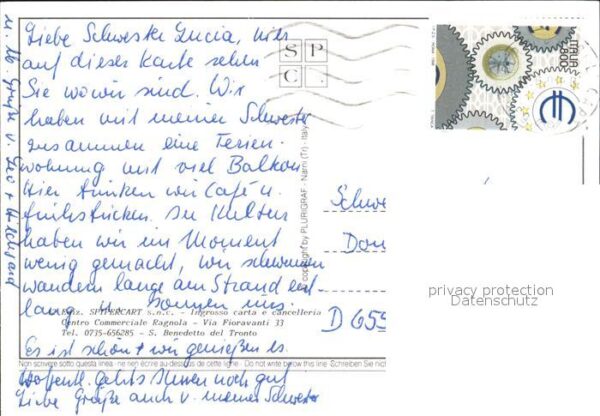 Liebe Schwester Lucia, hier
auf dieser Karte sehen
Sie wo wir sind. Wir
haben mit meiner Schwester
zusammen eine Ferien-
wohnung mit viel Balkon.
Hier trinken wir Café u.
frühstücken. In Kultur
haben wir im Moment
wenig gemacht, wir schwimmen
wandern lange am Strand ent-
lang u. sonnen uns.
Es ist schön + wir genießen es.
Hoffentl. geht's Ihnen noch gut
Liebe Grüße auch v. meiner Schwester
u. liebe Grüße v. Leo + Hildegard
SPC
ITALIA
800
© copyright by PLURIGRAF - Narni (Tr) - Italy
Schwe
Don
D 655
privacy protection
Datenschutz
Ediz. SPYPERCART s.n.c. - Ingrosso carta e cancelleria
Centro Commerciale Ragnola - Via Fioravanti 33
Tel. 0735-656285 - S. Benedetto del Tronto
Non scrivere sotto questa linea - ne rien écrire au-dessous de cette ligne - Do not write below this line - Schreiben Sie nicht